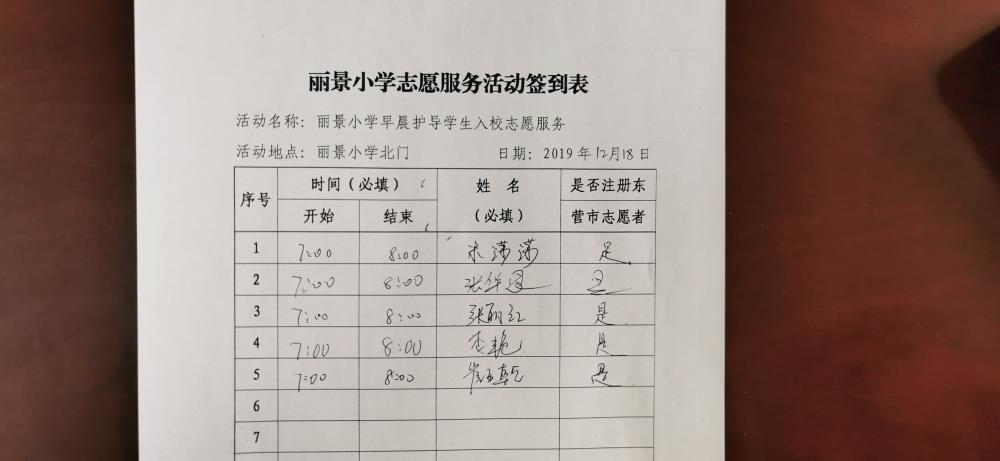 丽景小学志愿服务活动签到表
活动名称：丽景小学早晨护导学生入校志愿服务
活动地点：丽景小学北门 日期：2019年12月18日
序号 时间（必填） 姓名（必填） 是否注册东营市志愿者
开始 结束
1 7:00 8:00 是
2 7:00 8:00 是
3 7:00 8:00 张丽红 是
4 7:00 8:00 李艳 是
5 7:00 8:00 是
6
7